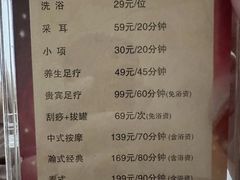 洗 浴 29元/位
采 耳 59元/20分钟
小 项 30元/20分钟
养生足疗 49元/45分钟
贵宾足疗 99元/60分钟(免浴资)
刮痧+拔罐 69元/次(免浴资)
中式按摩 139元/70分钟(含浴资)
瀚式经典 169元/80分钟(含浴资)
泰式 199元/90分钟(含浴资)